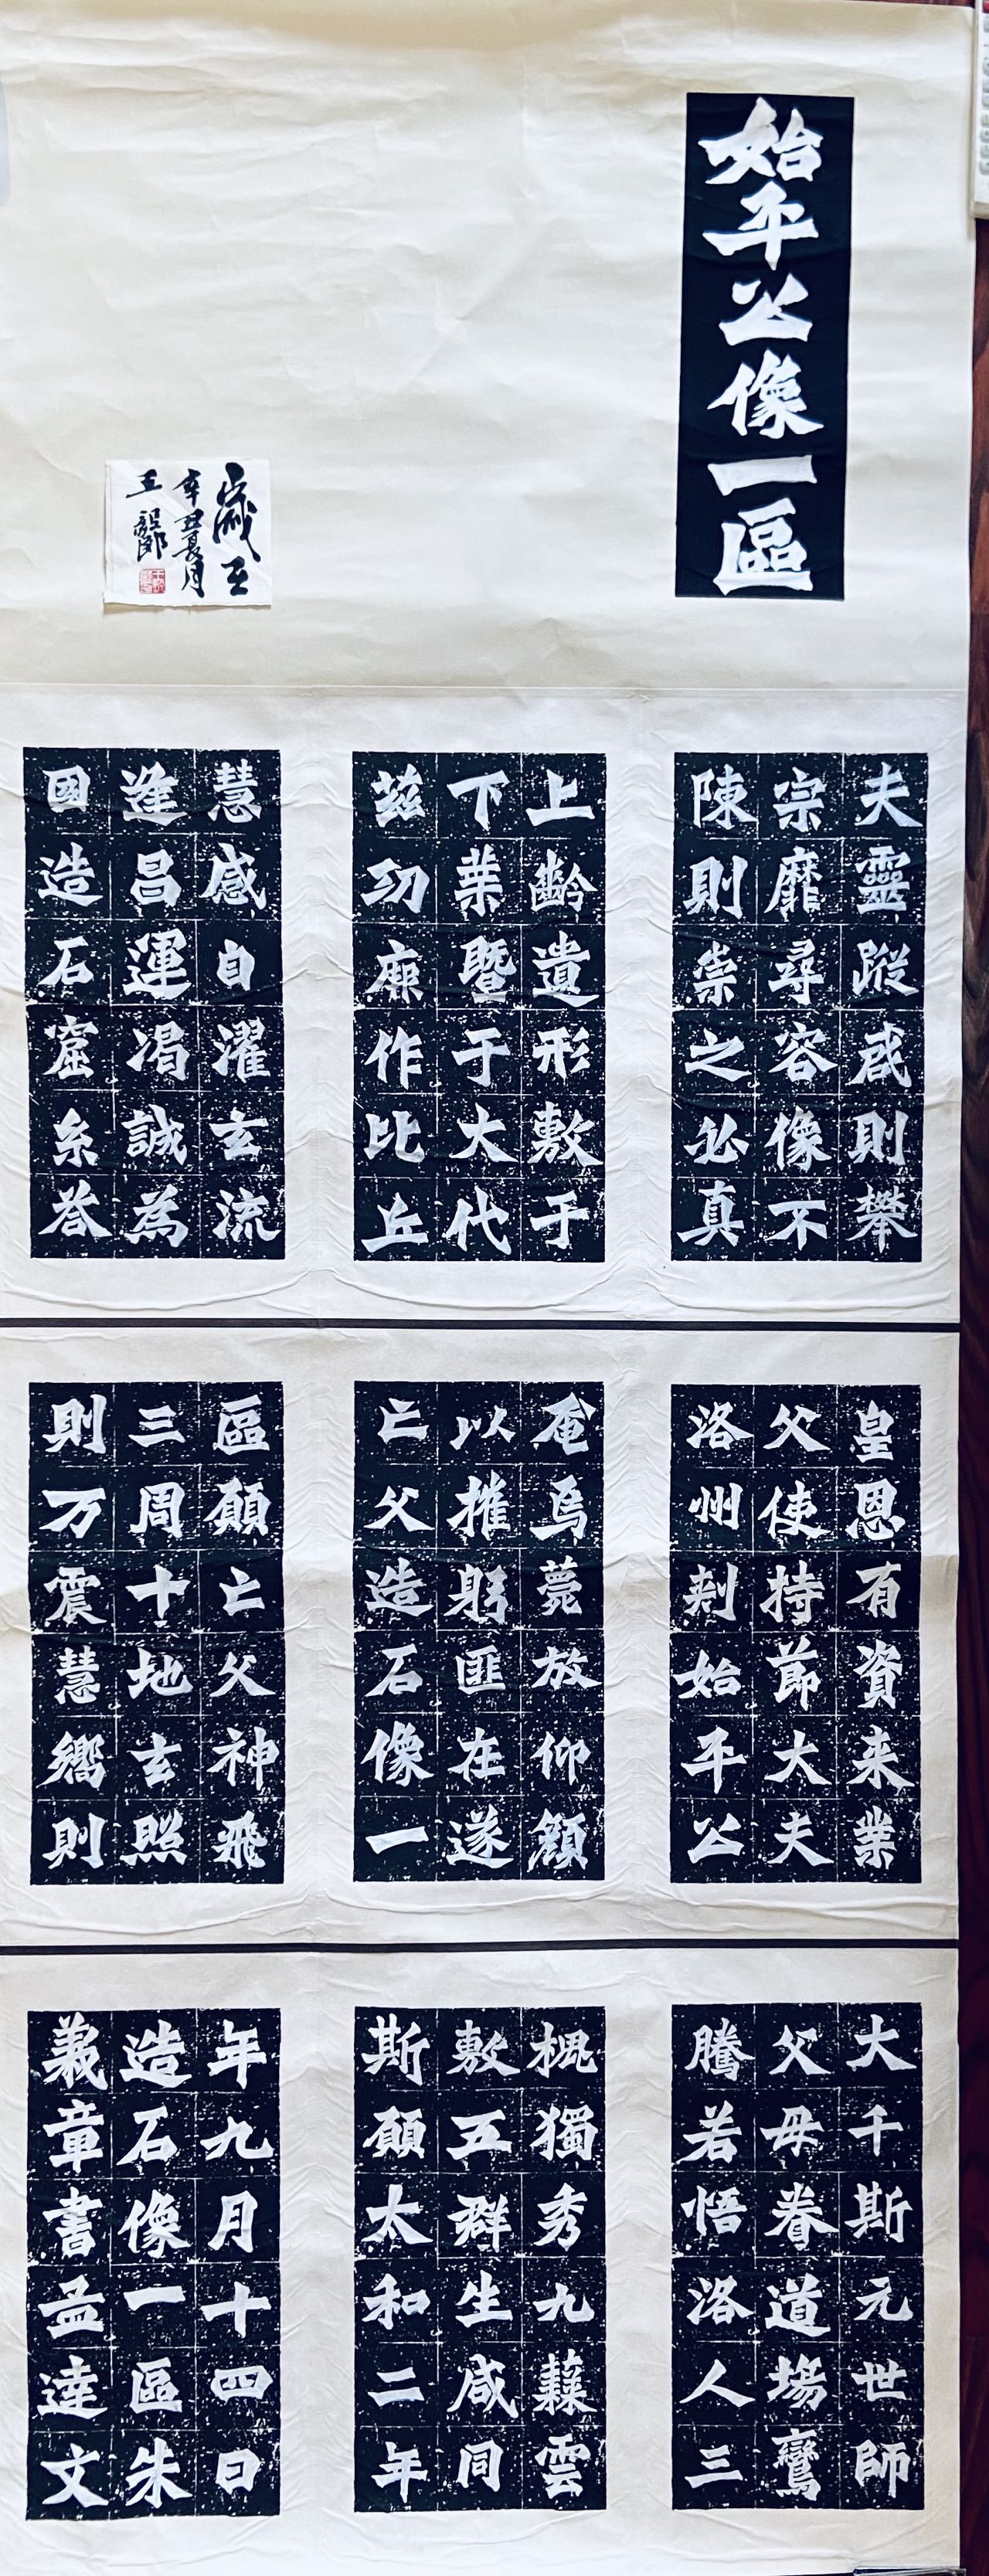 始平公像一區
歲
辛丑夏月
王
夫靈蹤啟則攀
宗靡尋容像不
陳則崇之必真
上齡遺形敷于
下葉暨于大代
茲功厥作比丘
慧感自濯玄流
逢昌運渴誠為
國造石窟系荅
皇恩有資来業
父使持節大夫
洛州刾始平公
奄焉薨放仰顏
以摧躬匪在遂
亡父造石像一
區願亡父神飛
三周十地玄照
則万震慧嚮則
大千斯元世師
父母眷道場鸞
騰若悟洛人三
槐獨秀九蕀雲
敷五群生咸同
斯願太和二年
年九月十四日
造石像一區朱
義章書孟達文